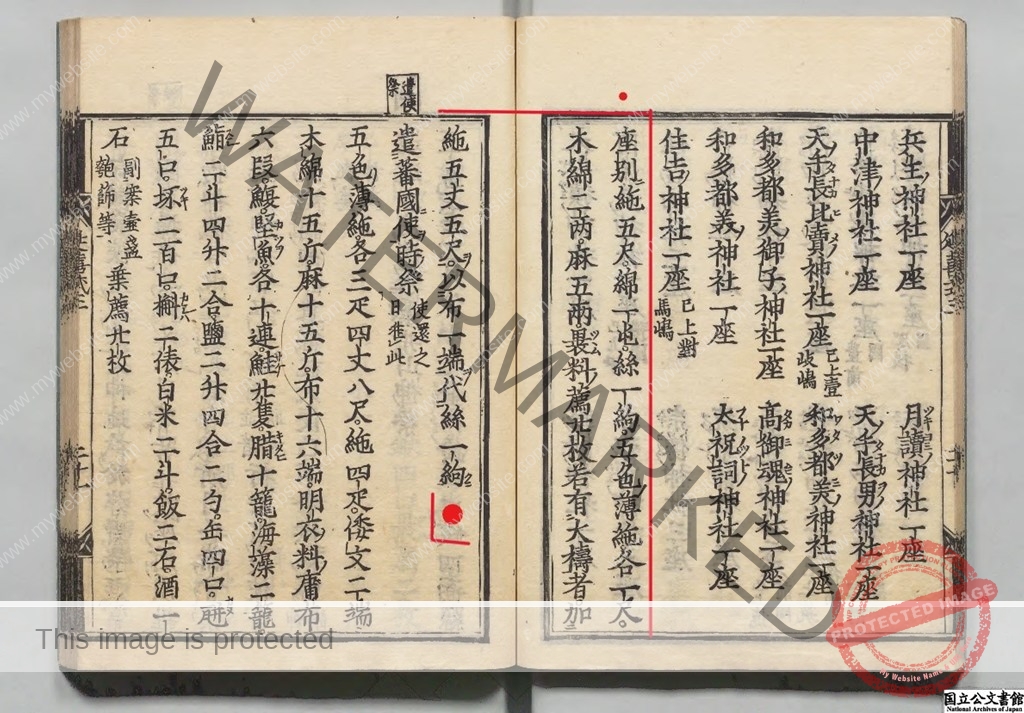 兵主神社一座
月讀神社一座
中津神社一座
天手長男神社一座
天手長比賣神社一座 已上壹岐嶋
和多都美神社一座
和多都美御子神社一座
高御魂神社一座
和多都美神社一座
太祝詞神社一座
住吉神社一座 已上對馬嶋
座別絁五尺綿一屯絲一絇五色薄絁各一尺
木綿二兩麻五兩裹料薦廿枚若有大禱者加
絁五丈五尺以布一端代絲一絇
遣使祭
遣蕃國使時祭 使還之日准此
五色薄絁各三疋四丈八尺絁四疋倭文二端
木綿十五斤麻十五斤布十六端明衣料庸布
六段鰒堅魚各十連鮭廿隻腊十籠海藻二籠
鮨二斗四升二合鹽二升四合二勺缶四口
五口坏二百口槲二俵白米二斗飯二石酒一
石 副案壺盞匏篩等 葉薦廿枚
WATERMARKED
This image is protected
PROTECTED IMAGE
My Website Name
www.mywebsite.com
国立公文書館
National Archives of Japan